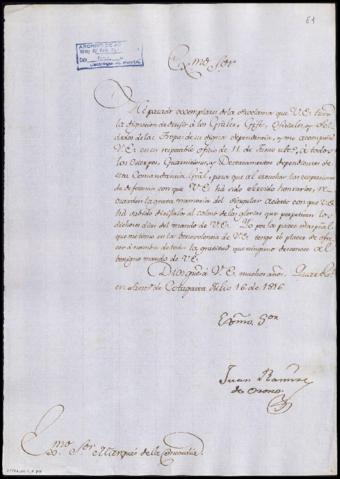 61
Exmo. Sor.
He pasado exemplares de la proclama que V.E. tuvo
la dignacion de dirigir á los Grales, Gefes, Oficiales, y Sol-
dados de las Tropas de su digna dependencia, y me acompaña
V.E. en su respetable oficio de 11 de Junio ulto. á todos
los cuerpos, Guarniciones, y Destacamentos dependientes de
esta Comandancia Gral, para que al escuchar las expresiones
de deferencia con que V.E. ha sido servido honrarlos, re-
cuerden la grata memoria del singular acierto con que V.E.
ha sabido
al colmo de las glorias que perpetuen los
dichosos dias del mando de V.E. Yo por la parte
que me toma en la benevolencia de V.E. tengo el placer de ofre-
cer á nombre de todos la gratitud que
al
benigno mando de V.E.
Dios gue. á V.E. muchos años.
en Santo. de Cotagaita Julio 16 de 1816
Exmo. Sor
Juan Ramirez
de Orozco
Exmo. Sor Marques de la Concordia.